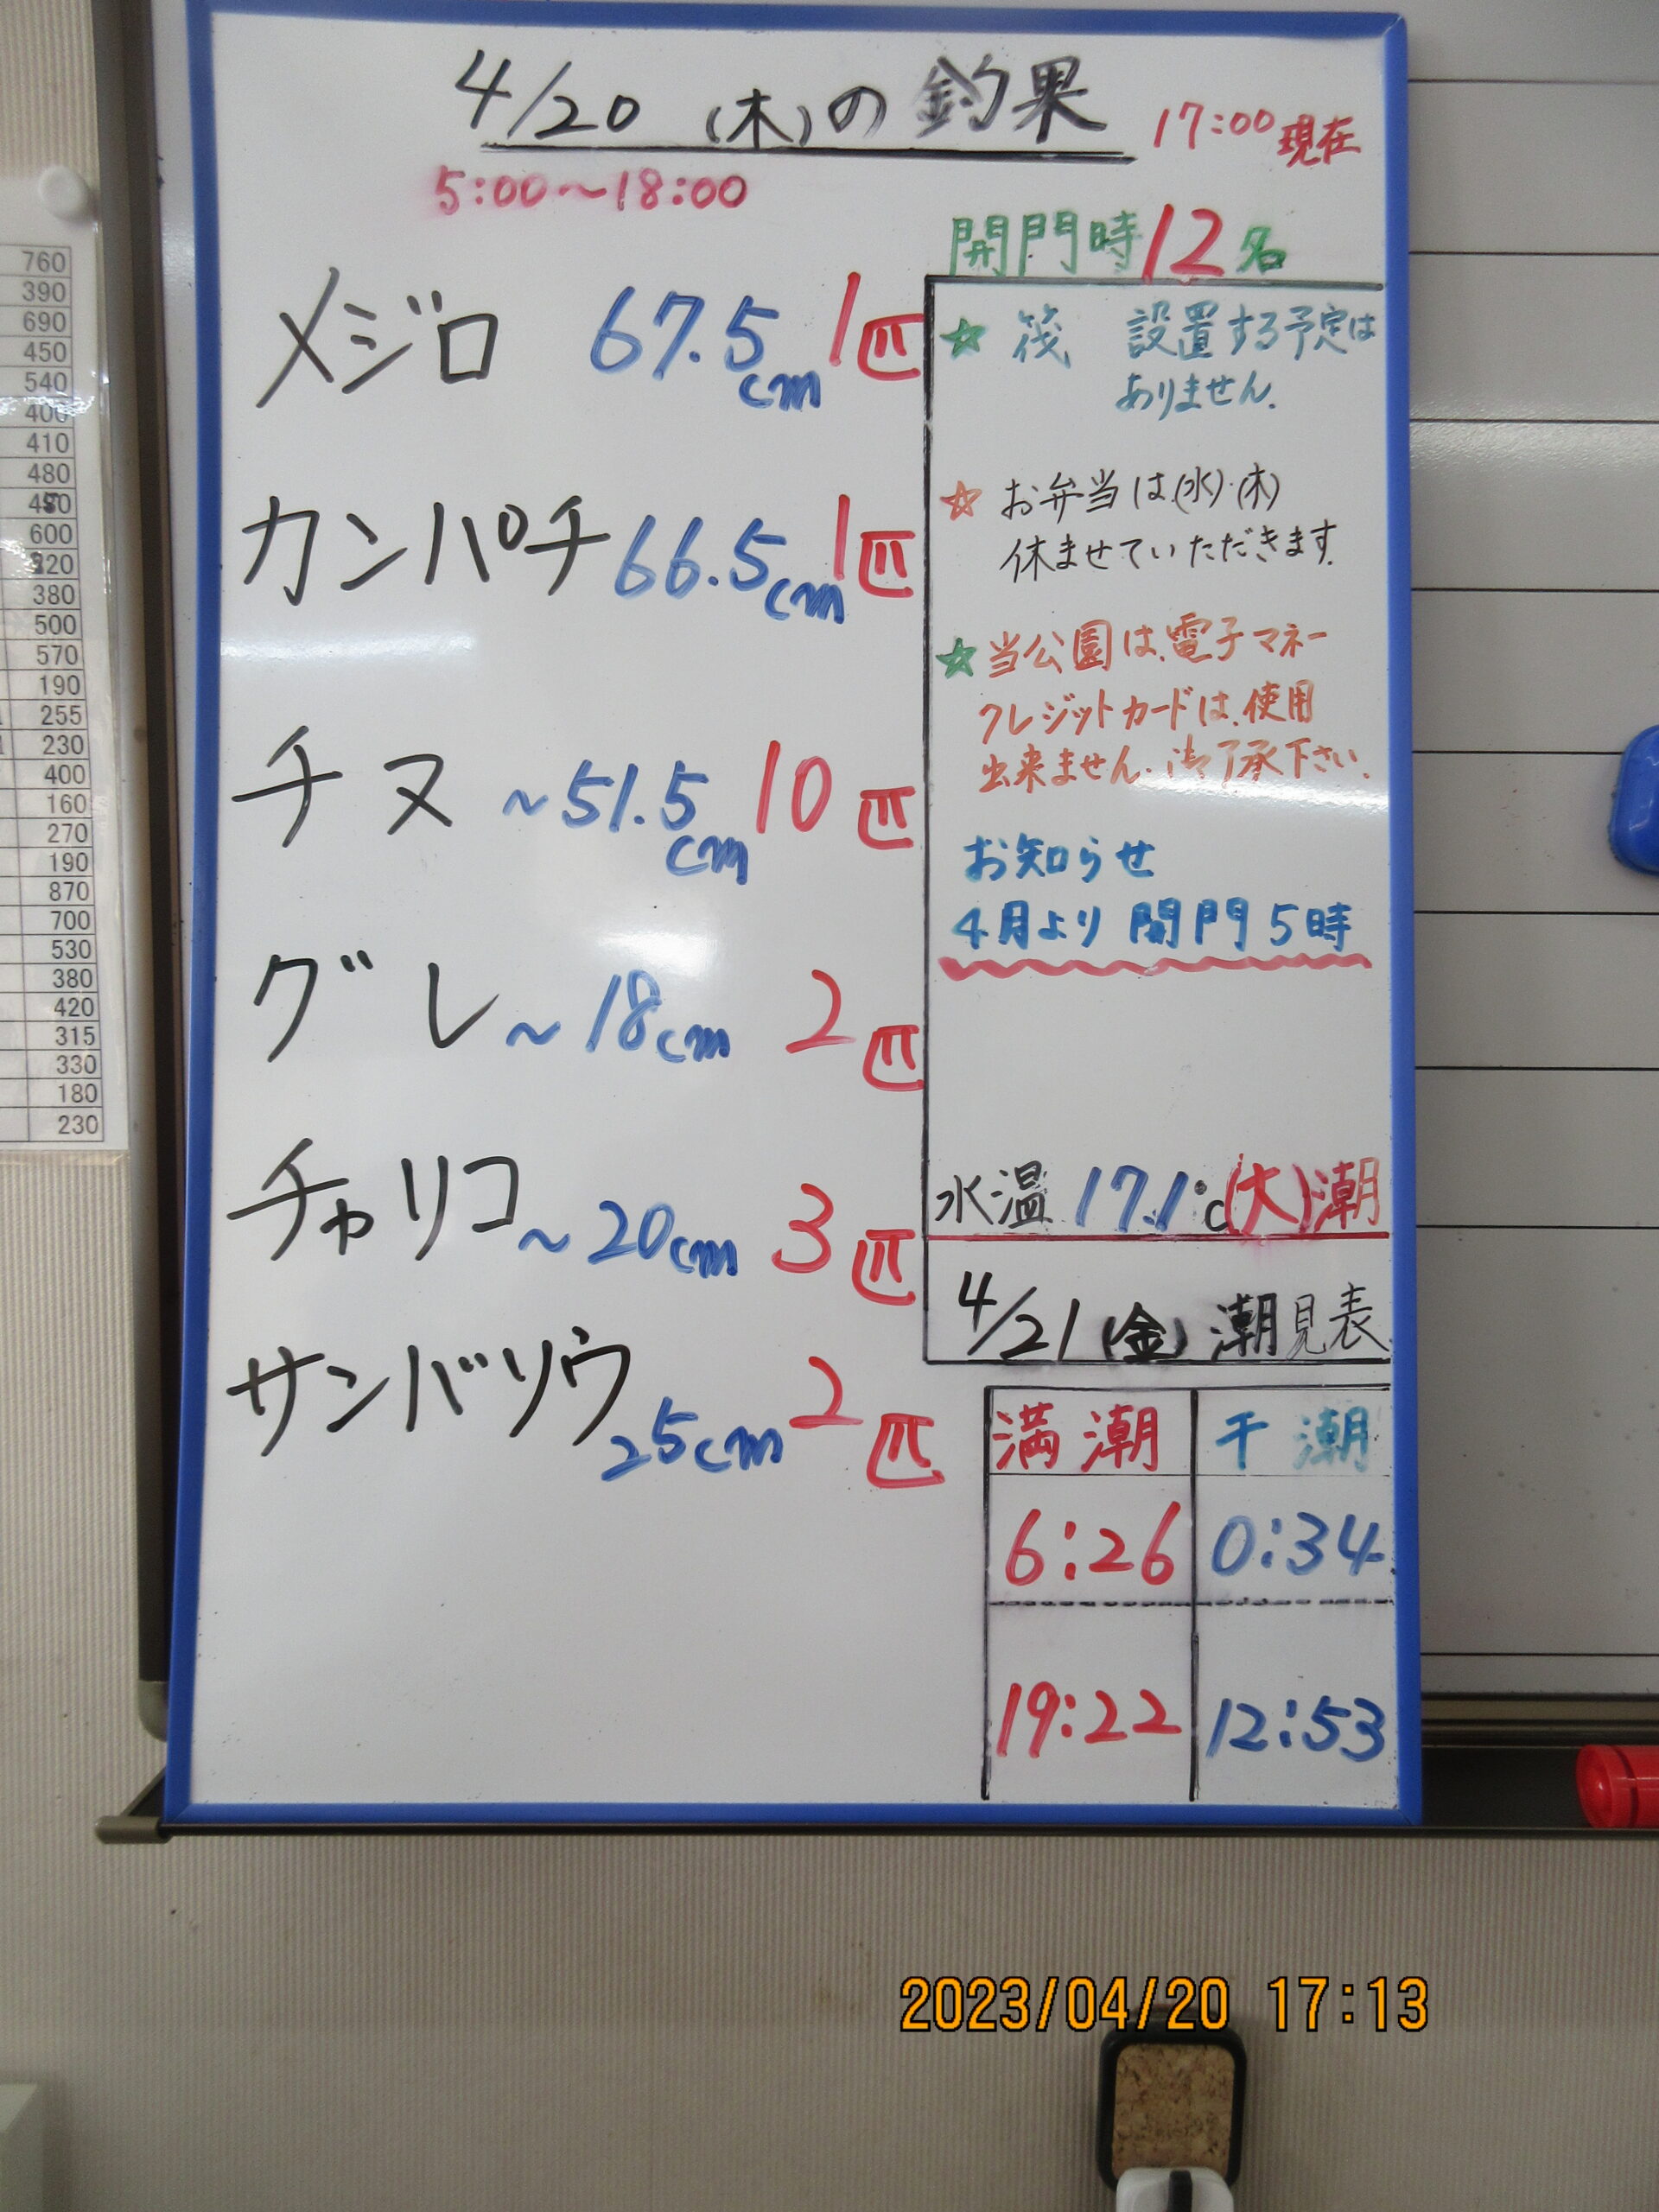 4/20 (木)の釣果
17:00現在
5:00～18:00
開門時12名
メジロ 67.5cm 1匹
カンパチ 66.5cm 1匹
チヌ ～51.5cm 10匹
グレ ～18cm 2匹
チャリコ ～20cm 3匹
サンバソウ 25cm 2匹
☆ 筏 設置する予定は
ありません.
☆ お弁当は(水)・(木)
休ませていただきます.
☆ 当公園は、電子マネー
クレジットカードは、使用
出来ません. 御了承下さい.
お知らせ
4月より 開門5時
水温 17.1℃ (大)潮
4/21 (金) 潮見表
満潮 干潮
6:26 0:34
19:22 12:53
760
390
690
450
540
400
410
480
600
380
500
570
190
255
230
400
160
270
190
870
700
530
380
420
315
330
180
230
2023/04/20 17:13